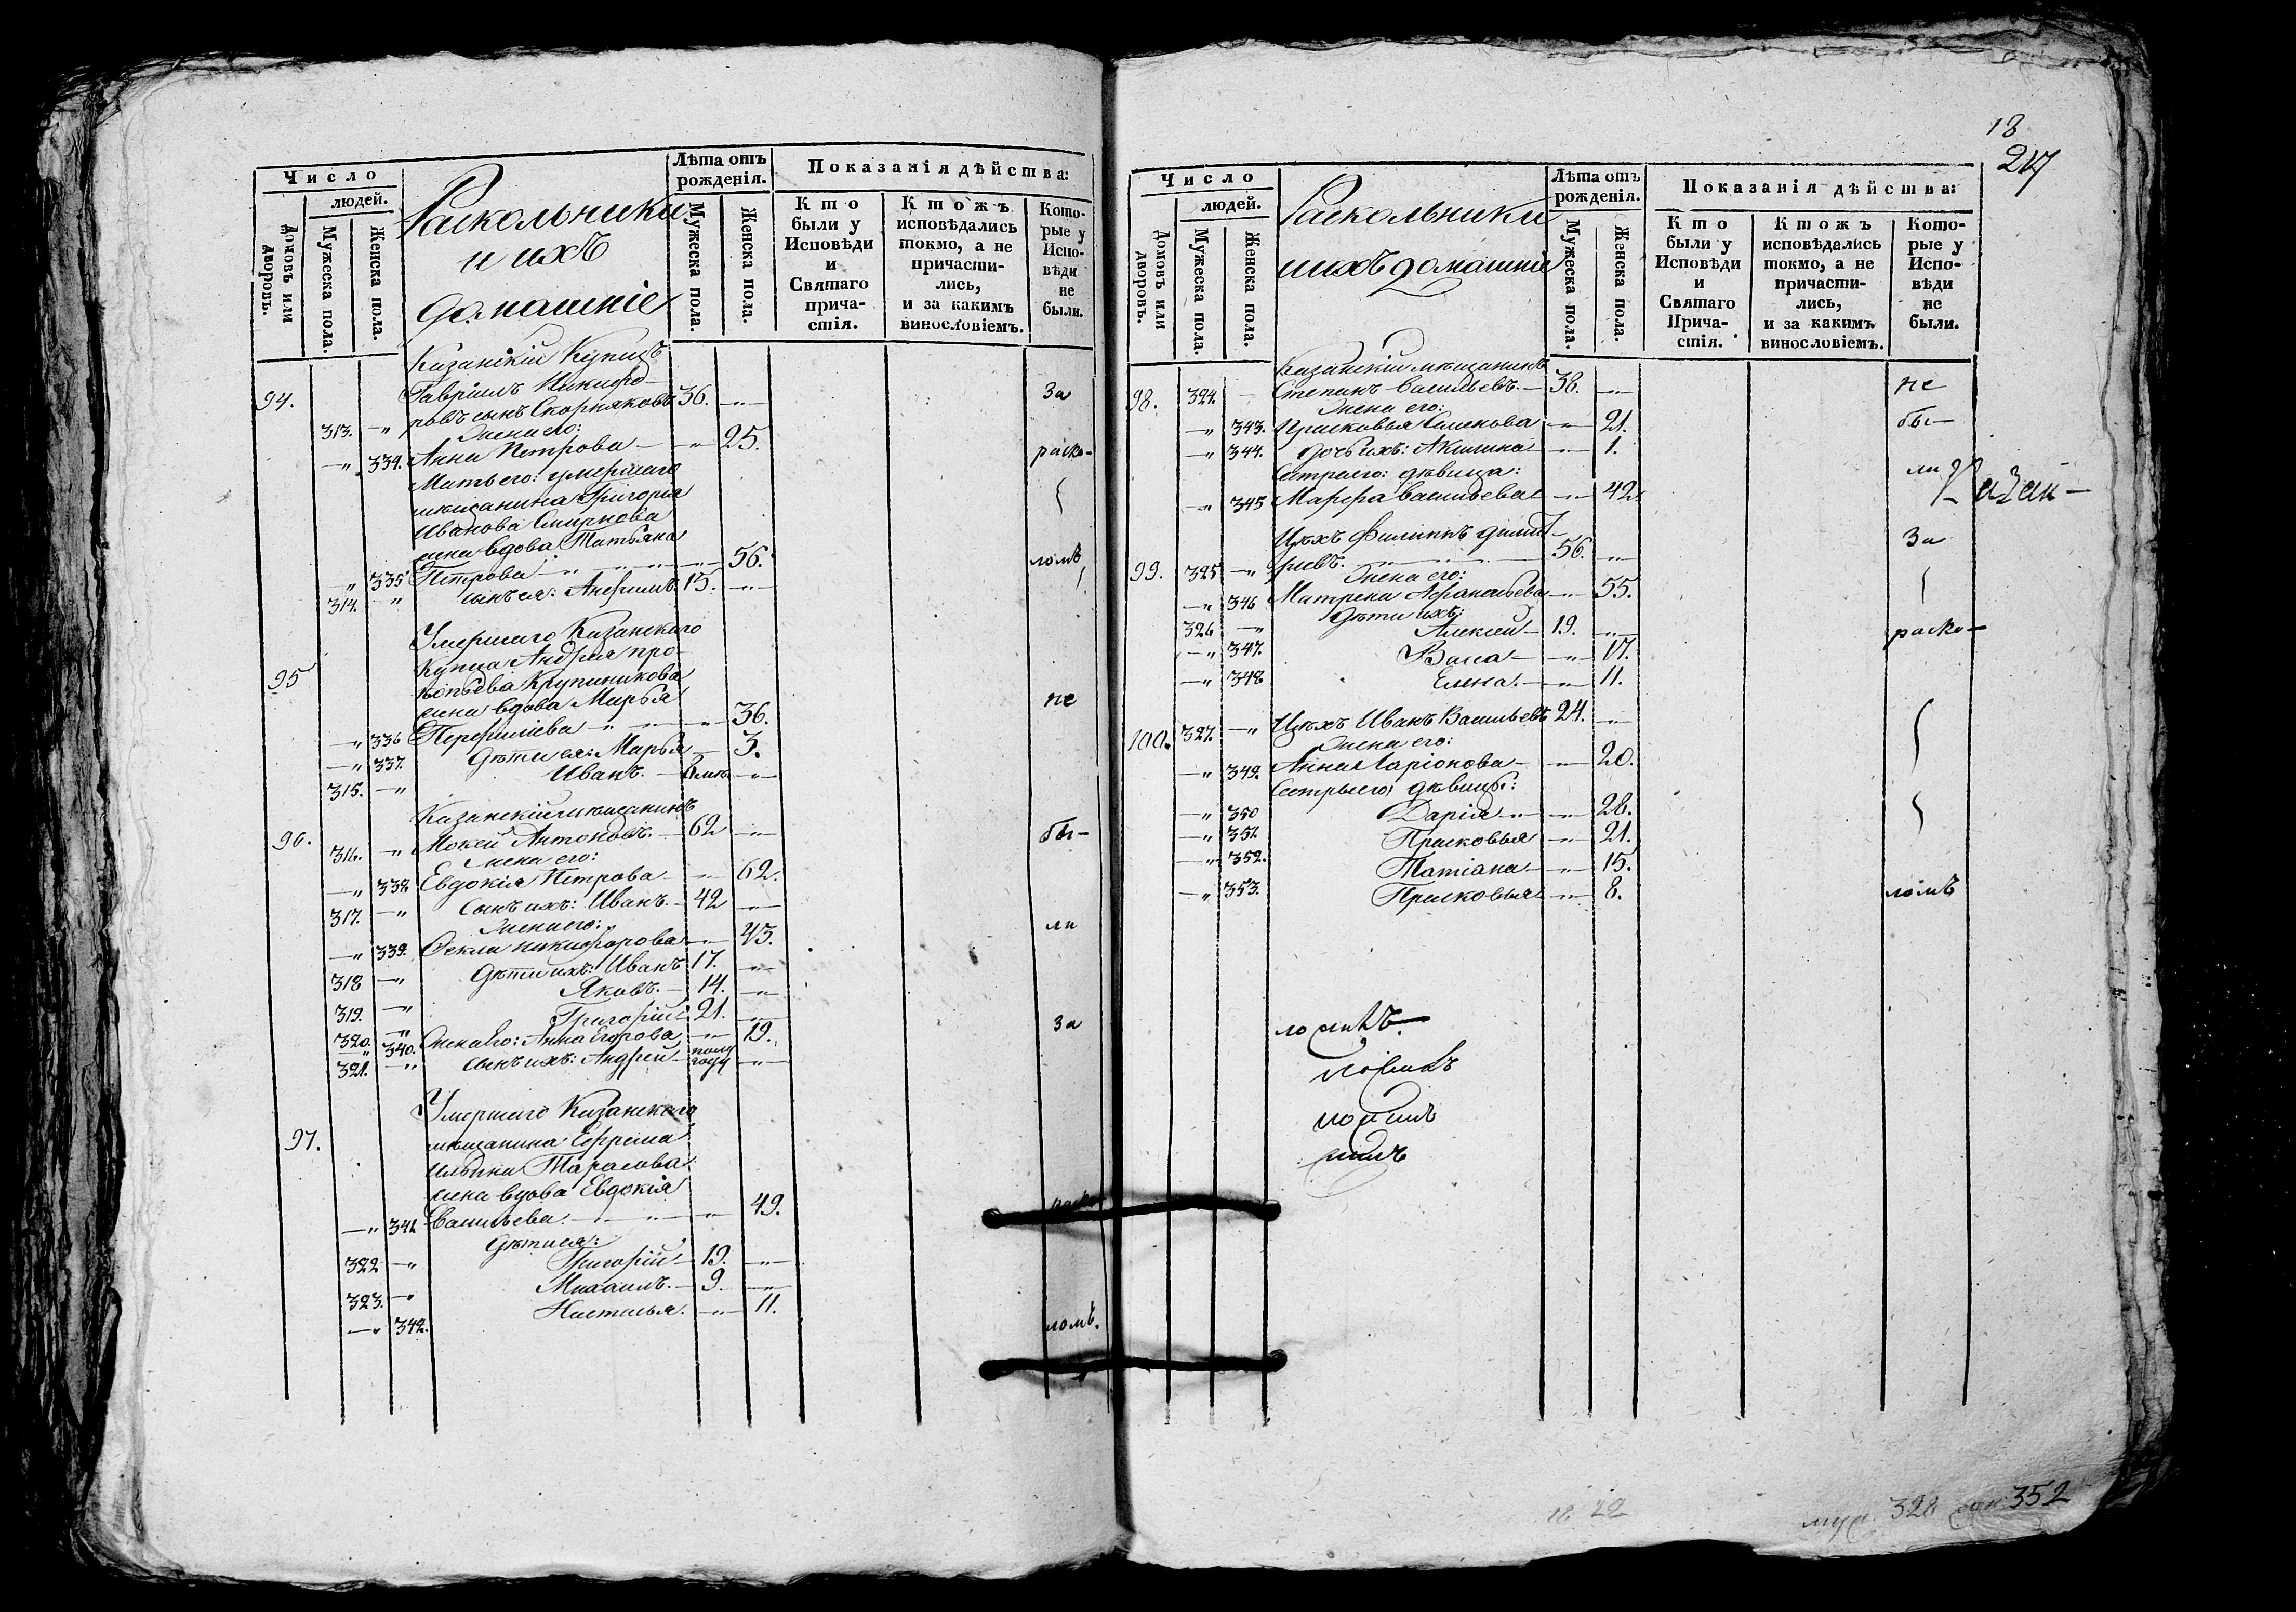 Число
людей.
Домовъ или дворовъ.
Мужеска пола.
Женска пола.
Раскольники
и ихъ
домашніе
Лѣта отъ
рожденія.
Мужеска пола.
Женска пола.
Показанія дѣйства:
Кто
были у
Исповѣди
и
Святаго
прича-
стія.
Ктожъ
исповѣдались
токмо, а не
причасти-
лись,
и за какимъ
винословіемъ.
Кото-
рые у
Испо-
вѣди
не
были.
Казанскій Купецъ
94. Гавріилъ Никифо- За
313. -„- ровъ сынъ Скорняковъ 36. -„-
Жена его:
-„- 334. Анна Петрова -„- 25. раско-
Мать его: умершаго
мѣщанина Григорья
Иванова Смирнова
жена вдова Татьяна
-„- 335 Петрова -„- 56. ломъ
314. -„- сынъ ея: Анфимъ 15. -„-
Умершаго Казанскаго
95 Купца Андрея Про-
копьева Крупеникова
жена вдова Марья не
-„- 336 Перфильева -„- 36.
-„- 337. Дѣти ея: Марья -„- 3.
315. -„- Иванъ. -„-
Казанскій мѣщанинъ
96. 316. -„- Мокей Антоновъ. 62 -„- бы-
Жена его:
-„- 338 Евдокія Петрова -„- 62.
317. -„- Сынъ ихъ: Иванъ. 42 -„-
Жена его: ли
-„- 339. Фекла Никифорова -„- 43.
318 -„- Дѣти ихъ: Иванъ 17. -„-
319. -„- Яковъ. 14. -„-
320. -„- Григорій 21. -„- За
-„- 340. Жена его: Анна Егорова -„- 19.
321. -„- сынъ ихъ: Андрей полу году -„-
Умершаго Казанскаго
97. мѣщанина Ефрема
Ильина Тарасова
жена вдова Евдокія
-„- 341. Васильева. -„- 49. раско-
Дѣти ея:
322 -„- Григорій 19. -„-
323. -„- Михаилъ. 9. -„-
-„- 342. Настасья. -„- 11. ломъ.
18
217
Число
людей.
Домовъ или дворовъ.
Мужеска пола.
Женска пола.
Раскольники
и ихъ домашніе
Лѣта отъ
рожденія.
Мужеска пола.
Женска пола.
Показанія дѣйства:
Кто
были у
Исповѣди
и
Святаго
Прича-
стія.
Ктожъ
исповѣдались
токмо, а не
причасти-
лись,
и за какимъ
винословіемъ.
Кото-
рые у
Испо-
вѣди
не
были.
Казанскій мѣщанинъ
98. 324. Степанъ Васильевъ. 38. -„- не
Жена его:
-„- 343. Прасковья Семенова -„- 21. бы-
-„- 344. дочь ихъ: Акилина -„- 1.
Сестра его: дѣвица: ли
-„- 345 Марфа Васильева -„- 42. Казан-
Цѣхъ Филиппъ Дмит- За
99. 325 -„- ріевъ. 56. -„-
Жена его:
-„- 346 Матрена Афанасьева -„- 55.
Дѣти ихъ:
326 -„- Алексей 19. -„- раско-
-„- 347. Васа -„- 17.
-„- 348 Елена. -„- 11.
100. 327. -„- Цѣхъ Иванъ Васильевъ 24. -„-
Жена его:
-„- 349. Анна Ларіонова -„- 20.
Сестры его: дѣвицы:
-„- 350 Дарія -„- 28.
-„- 351. Прасковья -„- 21.
-„- 352. Татіана -„- 15.
-„- 353. Прасковья -„- 8. ломъ
18 22
муж. 328 жен 352